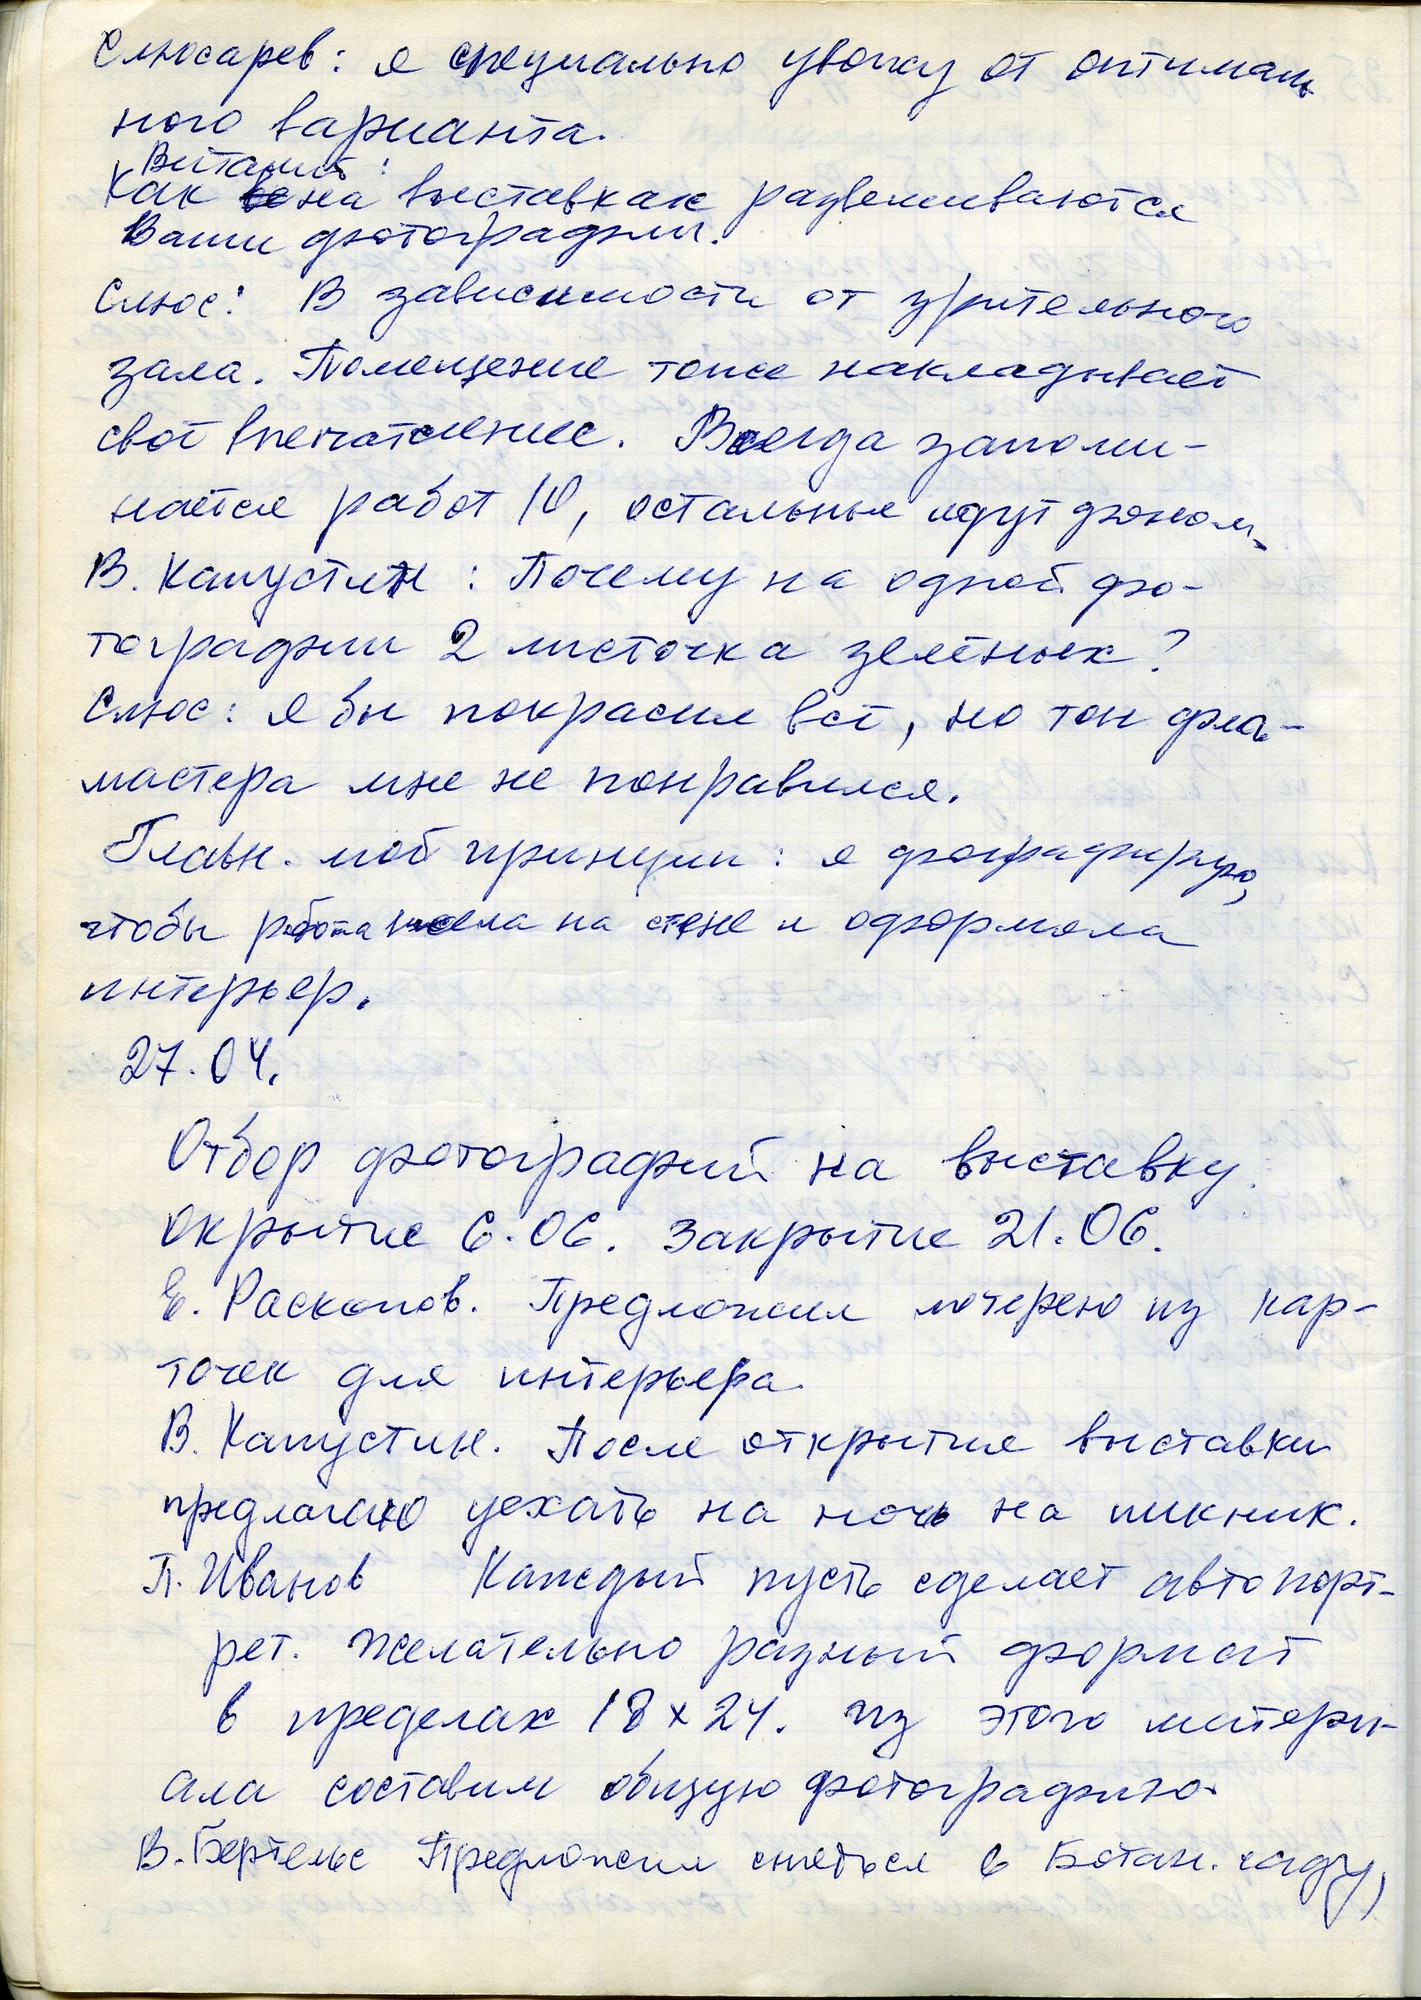 Слюсарев: я специально увожу от оптималь
ного варианта.
Виталий:
Как на выставках развешиваются
Ваши фотографии.
Слюс: В зависимости от зрительного
зала. Помещение тоже накладывает
своё впечатление. Всегда запоми-
наётся работ 10, остальные идут фоном.
В. Капустин: Почему на одной фо-
тографии 2 листочка зелёных?
Слюс: я бы покрасил всё, но тон фла-
мастера мне не понравился.
Главн. мой принцип: я фотографирую,
чтобы работа висела на стене и оформляла
интерьер.
27.04.
Отбор фотографий на выставку.
Окрытие 6.06. Закрытие 21.06.
Е. Раскопов. Предложил лотерею из кар-
точек для интерьера
В. Капустин. После открытия выставки
предлагаю уехать на ночь на пикник.
П. Иванов Каждый пусть сделает автопорт-
рет. Желательно разный формат
в пределах 18х24. Из этого матери-
ала составим общую фотографию.
В. Бертельс Предложил сняться в Ботан. саду,